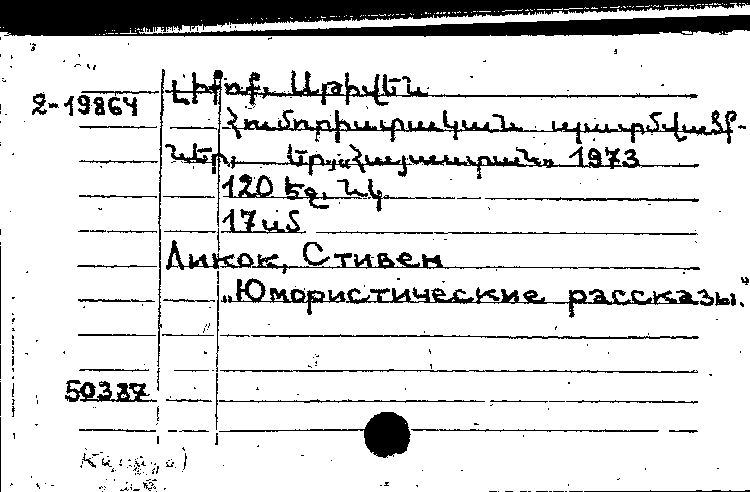 2-19864 Լիքոք, Սթիվեն
Հումորիստական պատմվածք-
ներ, Եր., «Հայաստան» 1973
120 եզ. նկ
17 սմ
Ликок, Стивен
„Юмористические рассказы."
50387